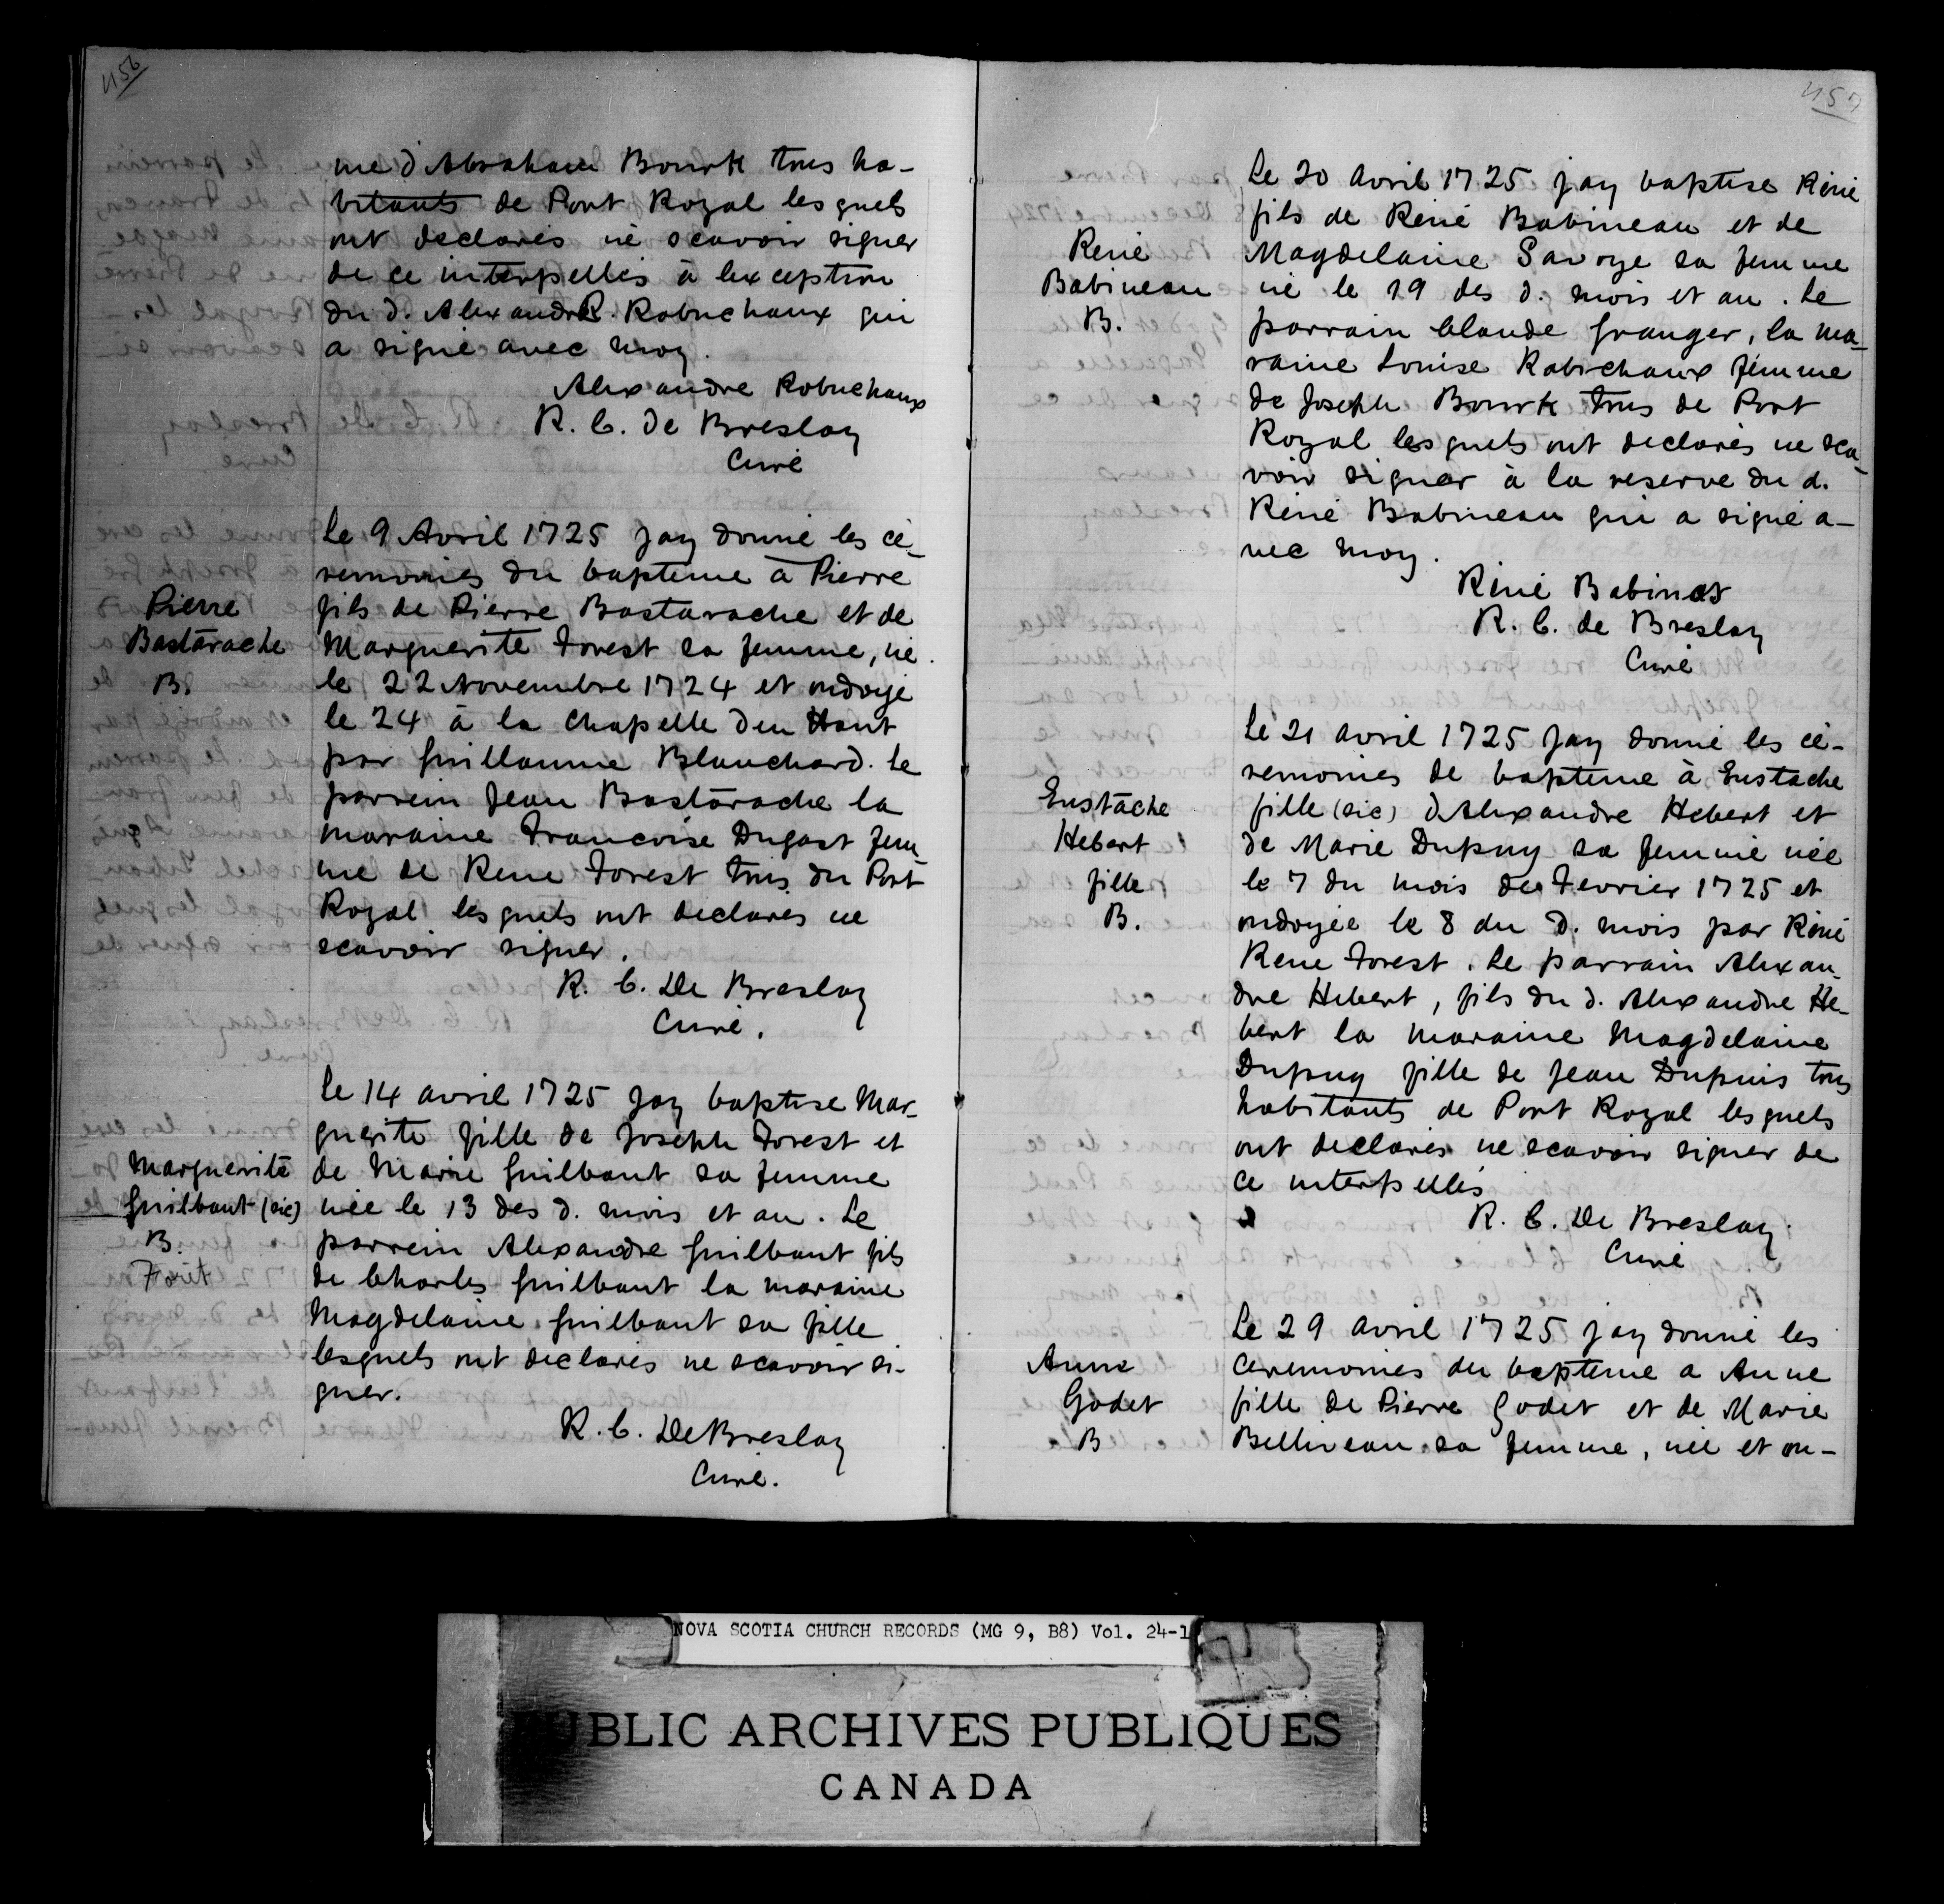 456
me d'Abraham Bourk tous ha-
bitants de Port Royal lesquels
ont declarés ne scavoir signer
de ce interpellés à lexception
du d. Alexandre R. Robuchaux qui
a signé avec moy.
Alexandre Robuchaux
R. C. de Breslay
Curé
Pierre
Bastarache
B.
Le 9 Avril 1725 Jay donné les cé-
remonies du bapteme à Pierre
fils de Pierre Bastarache et de
Marguerite Forest sa femme, né
le 22 Novembre 1724 et ondoyé
le 24 à la Chapelle d'en Haut
par Guillaume Blanchard. Le
parrein Jean Bastarache la
maraine Francoise Dugast fem-
me de Rene Forest tous du Port
Royal lesquels ont declarés ne
scavoir signer.
R. C. De Breslay
Curé.
Marguerite
Guilbaut (sic)
B.
Foret
Le 14 avril 1725 Jay baptise Mar-
guerite fille de Joseph Forest et
de Marie Guilbaut sa femme
née le 13 des d. mois et an. Le
parrein Alexandre Guilbaut fils
de Charles Guilbaut la maraine
Magdelaine Guilbaut sa fille
lesquels ont declarés ne scavoir si-
gner.
R. C. De Breslay
Curé.
457
René
Babineau
B.
Le 20 Avril 1725 jay baptise Réné
fils de René Babineau et de
Magdelaine Savoye sa femme
né le 19 des d. mois et an. Le
parrain Claude Granger, la ma-
raine Louise Robichaux femme
de Joseph Bourk tous de Port
Royal lesquels ont declarés ne sca-
voir signer à la reserve du d.
Réné Babineau qui a signé a-
vec moy.
Réné Babinos
R. C. de Breslay
Curé
Eustache
Hebert
fille
B.
Le 21 avril 1725 Jay donné les cé-
remonies de bapteme à Eustache
fille (sic) d'Alexandre Hebert et
de Marie Dupuy sa femme née
le 7 du mois de Fevrier 1725 et
ondoyée le 8 du d. mois par Réné
Rene Forest. Le parrain Alexan-
dre Hebert, fils du d. Alexandre He-
bert la maraine Magdelaine
Dupuy fille de Jean Dupuis tous
habitants de Port Royal lesquels
ont declarés ne scavoir signer de
ce interpellés
R. C. De Breslay.
Curé
Anne
Godet
B
Le 29 avril 1725 jay donné les
ceremonies du bapteme a Anne
fille de Pierre Godet et de Marie
Belliveau sa femme, née et on-
NOVA SCOTIA CHURCH RECORDS (MG 9, B8) Vol. 24-1
PUBLIC ARCHIVES PUBLIQUES
CANADA